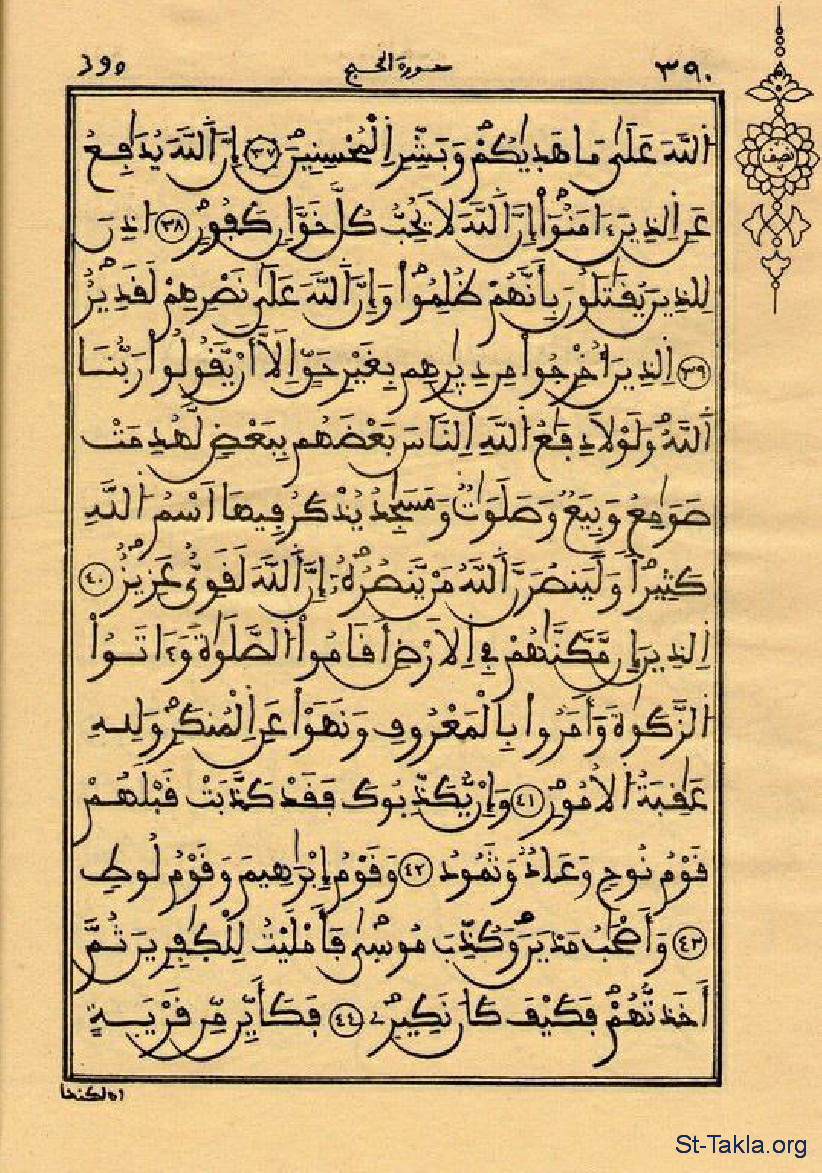 ٣٩٠ سورة الحج
نصف
اَللَّهَ عَلَىٰ مَا هَدٜيٰكُمْ وَبَشِّرِ اِلْمُحْسِنِينَ ٣٧ إِنَّ اَللَّهَ يُدَٰفِعُ
عَنِ اِلذِينَ ءَامَنُوٓاْ إِنَّ اَللَّهَ لَا يُحِبُّ كُلَّ خَوَّانٍ كَفُورٍ ٣٨ اُذِنَ
لِلذِينَ يُقَٰتَلُونَ بِأَنَّهُمْ ظُلِمُواْ وَإِنَّ اَللَّهَ عَلَىٰ نَصْرِهِمْ لَقَدِيرٌ
٣٩ اِلذِينَ أُخْرِجُواْ مِن دِيٰرِهِم بِغَيْرِ حَقٍّ اِلَّآ أَنْ يَّقُولُواْ رَبُّنَا
اَللَّهُ وَلَوْلَا دِفَٰعُ اُللَّهِ اِلنَّاسَ بَعْضَهُم بِبَعْضٍ لَّهُدِمَتْ
صَوَٰمِعُ وَبِيَعٌ وَصَلَوَٰتٌ وَمَسَٰجِدُ يُذْكَرُ فِيهَا اَسْمُ اُللَّهِ
كَثِيراً وَلَيَنصُرَنَّ اَللَّهُ مَنْ يَّنصُرُهُۥٓ إِنَّ اَللَّهَ لَقَوِيٌّ عَزِيزٌ ٤٠
اِلذِينَ إِن مَّكَّنَّٰهُمْ فِي اِلَارْضِ أَقَامُواْ اُلصَّلَوٰةَ وَءَاتَوُاْ
اُلزَّكَوٰةَ وَأَمَرُواْ بِالْمَعْرُوفِ وَنَهَوْاْ عَنِ اِلْمُنكَرِ وَلِلهِ
عَٰقِبَةُ اُلُامُورِ ٤١ وَإِنْ يُّكَذِّبُوكَ فَقَدْ كَذَّبَتْ قَبْلَهُمْ
قَوْمُ نُوحٍ وَعَادٌ وَثَمُودُ ٤٢ وَقَوْمُ إِبْرَٰهِيمَ وَقَوْمُ لُوطٍ
٤٣ وَأَصْحَٰبُ مَدْيَنَ وَكُذِّبَ مُوسٜىٰ فَأَمْلَيْتُ لِلْكٰفِرِينَ ثُمَّ
أَخَذتُّهُمْ فَكَيْفَ كَانَ نَكِيرِ ٤٤ فَكَأَيِّن مِّن قَرْيَةٍ
اهلكنها
St-Takla.org